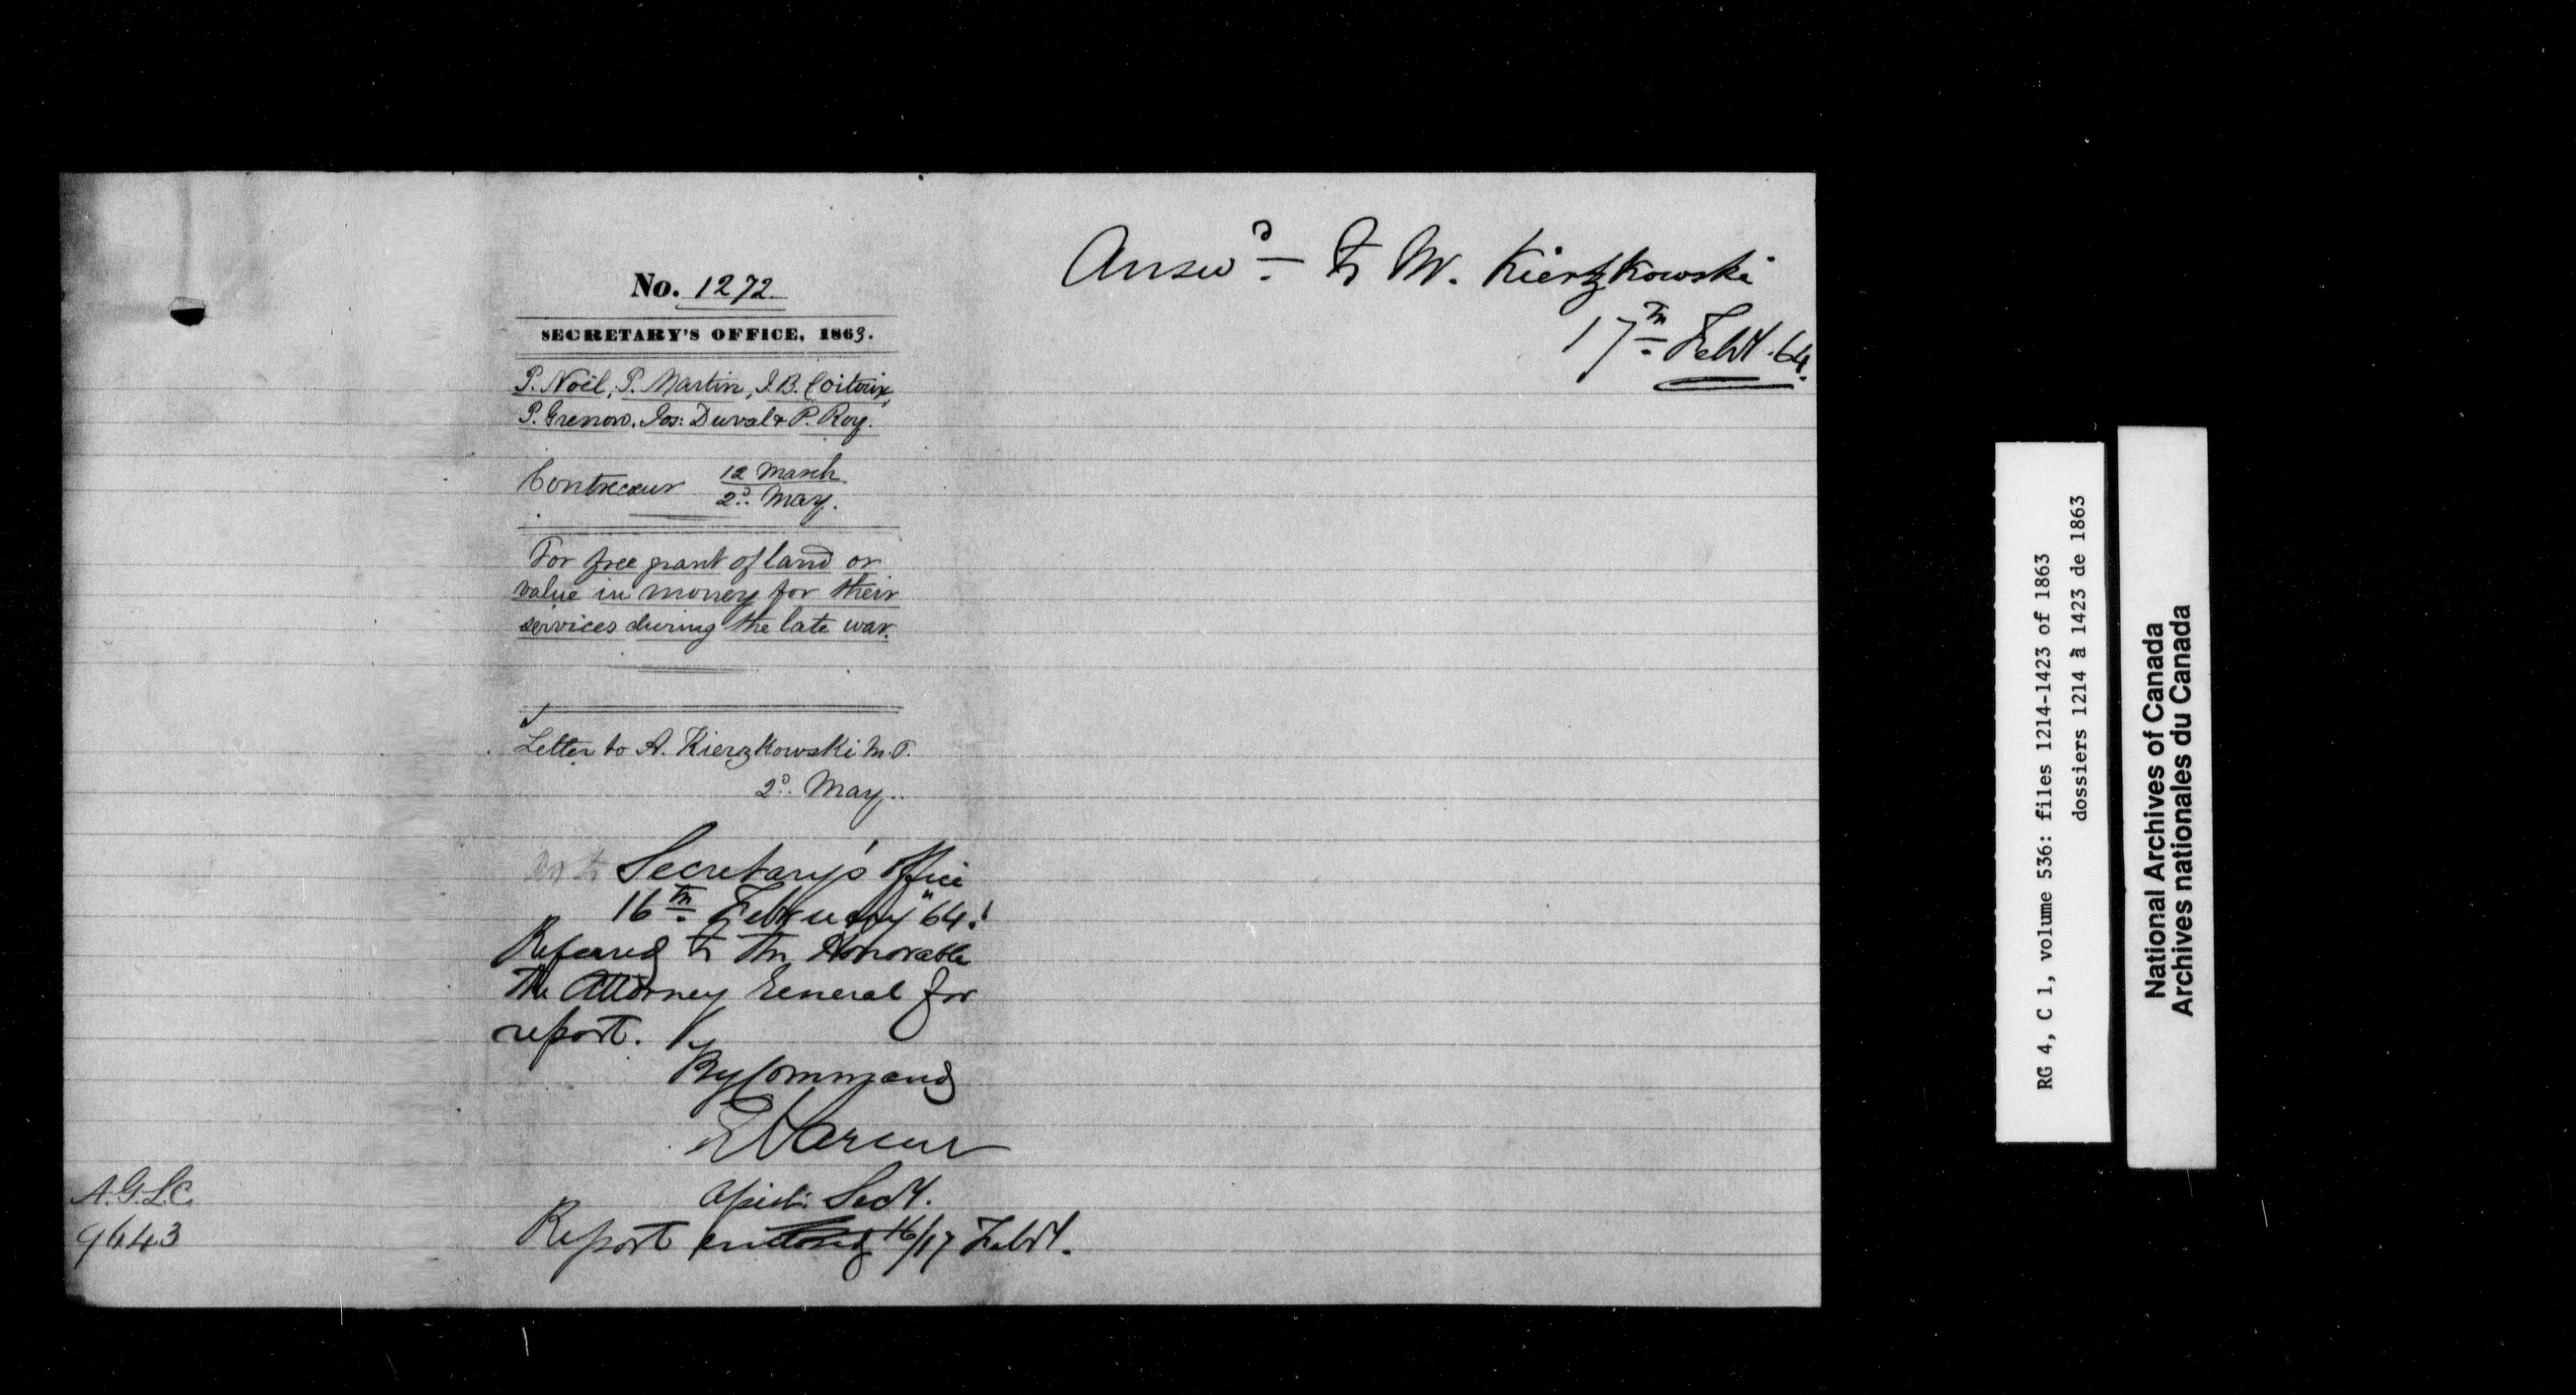 No. 1272
SECRETARY'S OFFICE, 1863.
P. Noël, P. Martin, J.B. Coiteux,
P. Grenon, Jos: Duval & P. Roy.
Contrecœur 12 March
2d. May.
For free grant of land or
value in money for their
services during the late war.
Letter to A. Kierzkowski M.P.
2d. May.
Secretary's Office
16th February "64.
Referred to the Honorable
The Attorney General for
report.
By Command
Assist: Secy.
Report enclosed 16/17 Feby.
A.G.L.C.
9643
Answd. to M. Kiertzkowski
17th Feby. 64.
RG 4, C 1, volume 536: files 1214-1423 of 1863
dossiers 1214 à 1423 de 1863
National Archives of Canada
Archives nationales du Canada